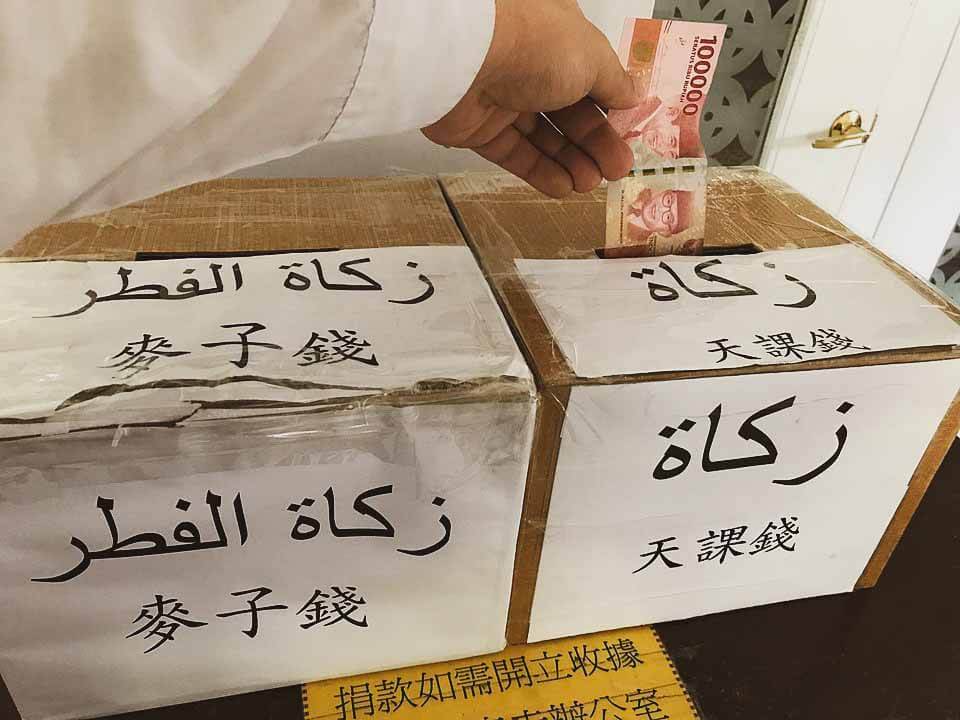 100000
SERATUS RIBU RUPIAH
زكاة الفطر
麥子錢
زكاة
天課錢
زكاة الفطر
麥子錢
زكاة
天課錢
捐款如需開立收據
辦公室